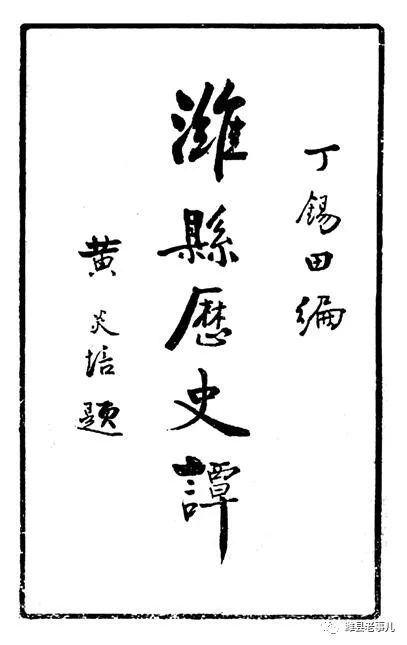 丁錫田編
濰縣歷史譚
黄炎培題
潍县老事儿